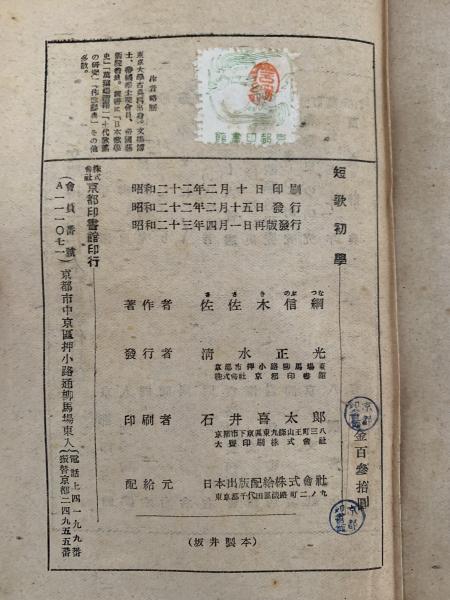 短歌初學
昭和二十二年二月十日印刷
昭和二十二年二月十五日發行
昭和二十三年四月一日再版發行
著作者 佐佐木信綱
さ さ き のぶ つな
發行者 清水正光
京都市押小路柳馬場東
株式會社 京都印書館
印刷者 石井喜太郎
京都市下京區東九條山王町三八
大寶印刷株式會社
配給元 日本出版配給株式會社
東京都千代田區淡路町二ノ九
金百參拾圓
京都
印書館
京都
印書館
(坂井製本)
株式會社京都印書館印行
(會員番號
A一一一〇七一)
京都市中京區押小路通柳馬場東入
電話上四一九九番
振替京都二四九五五番
作者略歷
東京大學古典科出身。文學博
士、帝國學士院會員、帝國藝
術院會員。著書に「日本歌學
史」
の研究」「作歌辭典」その他
多數。
京都印書館